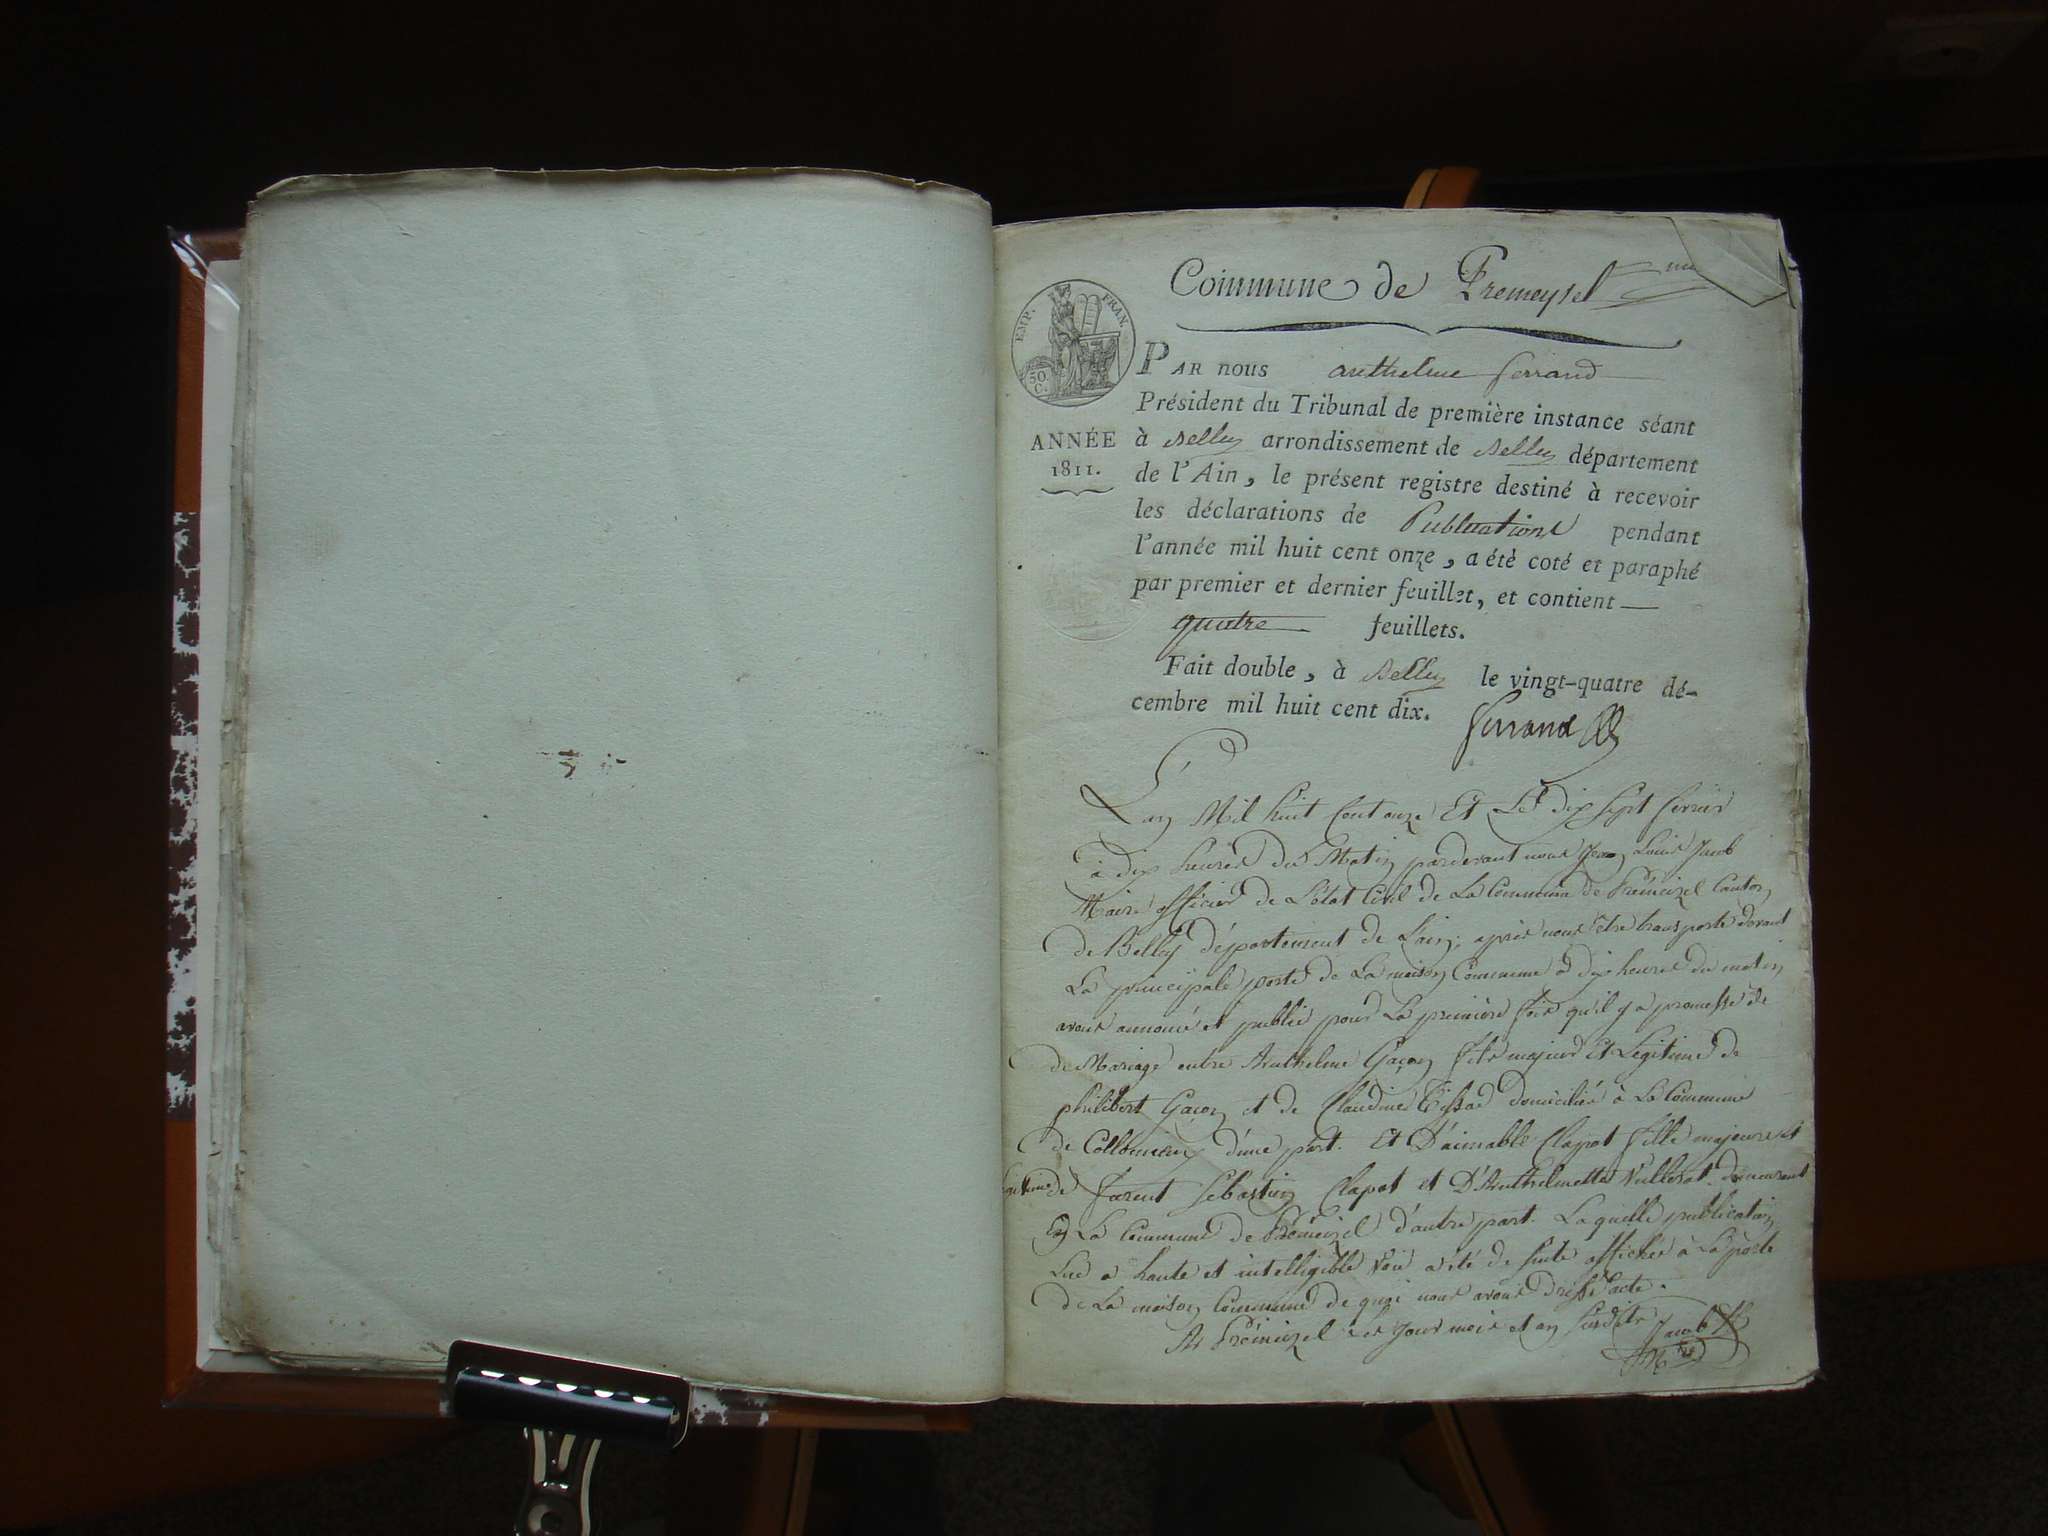 Commune de Premeysel
EMP. FRAN.
50.
C.
PAR nous anthelme ferrand
Président du Tribunal de première instance séant
ANNÉE
1811.
à Belley arrondissement de Belley département
de l'Ain, le présent registre destiné à recevoir
les déclarations de Publications pendant
l'année mil huit cent onze, a été coté et paraphé
par premier et dernier feuillet, et contient
quatre feuillets.
Fait double, à Belley le vingt-quatre dé-
cembre mil huit cent dix. ferrand
L'an Mil huit Cent onze Et Le dix sept fevrier
à dix heures du Matin pardevant nous Jean Louis Jacob
Maire officier de L'état Civil de La Commune de Prémeizel Canton
de Belley département de L'ain; après nous être transporté devant
La principale porte de La maison Commune à dix heures du matin
avons annoncé et publié pour La première fois qu'il y a promesse de
de Mariage entre Anthelme Gacon fils majeur Et Légitime de
philibert Gacon et de Claudine Tissot domicilié à La Commune
de Collomieu d'une part. Et D'aimable Clapot fille majeure et
légitime de Sebastien Clapot et D'Anthelmette Vullerot demeurant
En La Commune de Prémeizel d'autre part. Laquelle publication
Lue a haute et intelligible voix a été de suite affichée à La porte
de La maison Commune de quoi nous avons dressé acte.
At Prémeizel Les jour mois et an susdits Jacob
M.re